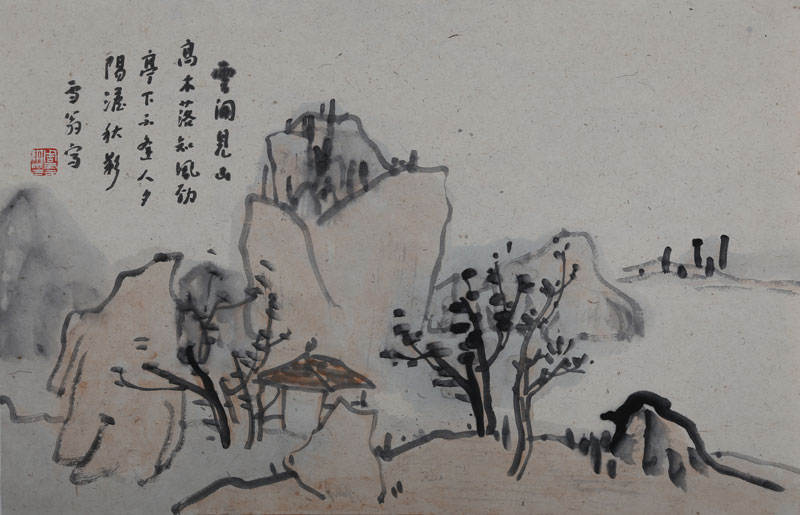 雲開見山
高木落知風勁
亭下不逢人夕
陽澹秋影
雪翁寫